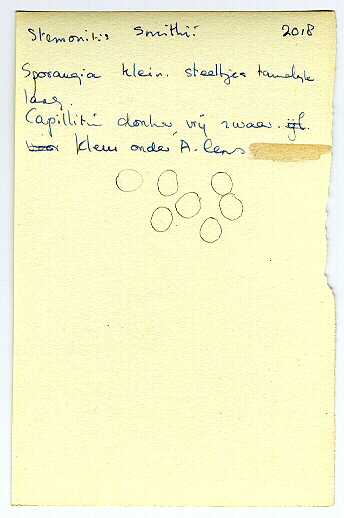 Stemonitis Smithii 2018
Sporangia klein. steeltjes tamelijk
laag.
Capillitiu donker, vrij zwaar. ijl.
kleur onder A. lens